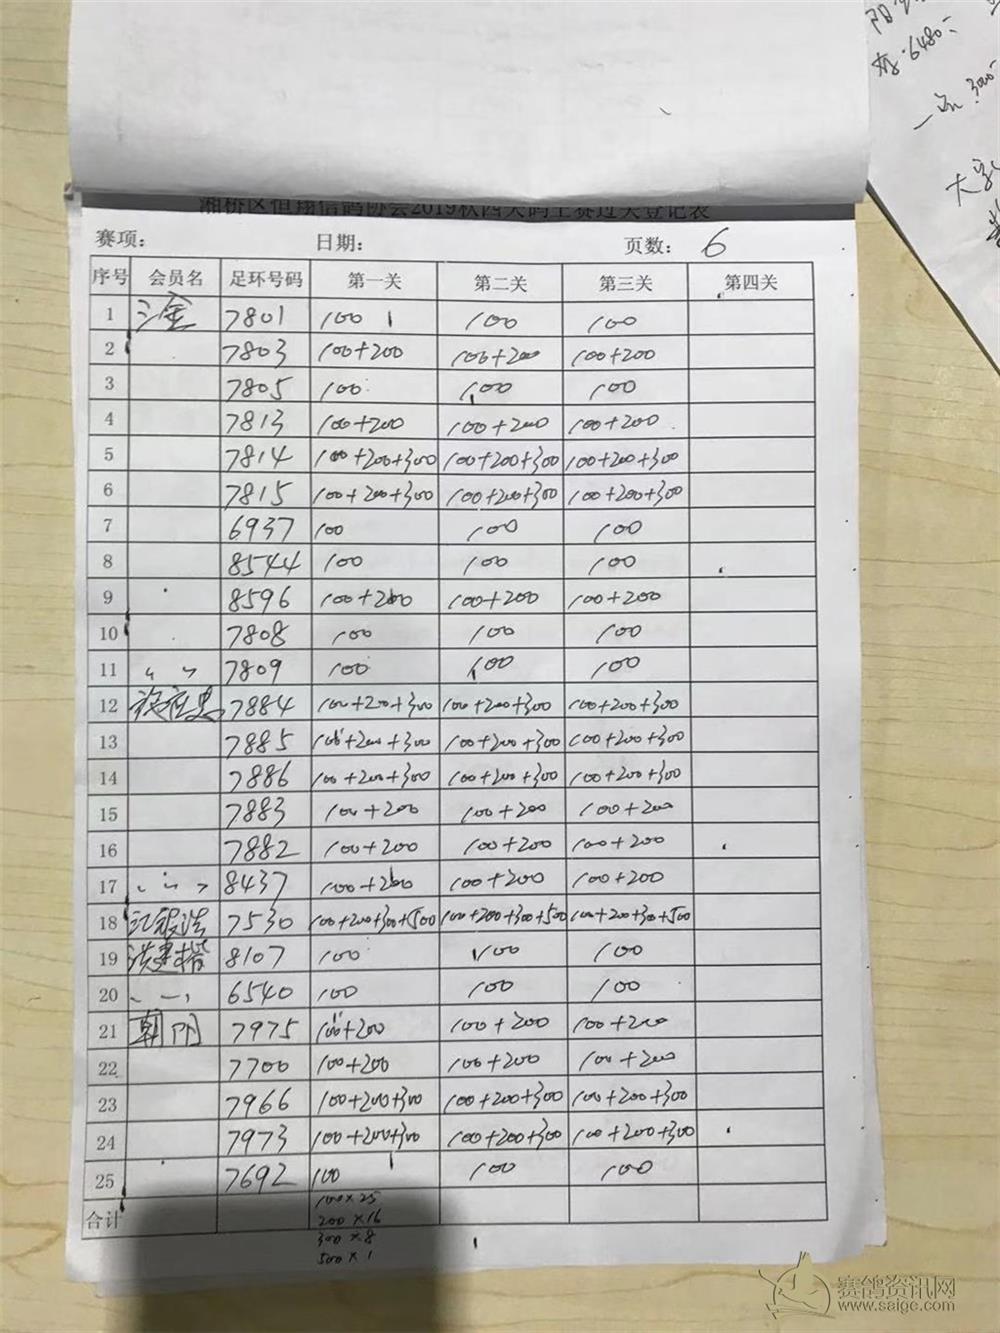 阳
6480
3000
湘桥区恒翔信鸽协会2019秋四关鸽王赛过关登记表
赛项： 日期： 页数： 6
序号 会员名 足环号码 第一关 第二关 第三关 第四关
1 7801 100 100 100
2 7803 100+200 100+200 100+200
3 7805 100 100 100
4 7813 100+200 100+200 100+200
5 7814 100+200+300 100+200+300 100+200+300
6 7815 100+200+300 100+200+300 100+200+300
7 6937 100 100 100
8 8544 100 100 100
9 8596 100+200 100+200 100+200
10 7808 100 100 100
11 " " 7809 100 100 100
12 7884 100+200+300 100+200+300 100+200+300
13 7885 100+200+300 100+200+300 100+200+300
14 7886 100+200+300 100+200+300 100+200+300
15 7883 100+200 100+200 100+200
16 7882 100+200 100+200 100+200
17 8437 100+200 100+200 100+200
18 7530 100+200+300+500 100+200+300+500 100+200+300+500
19 8107 100 100 100
20 6540 100 100 100
21 朝阳 7975 100+200 100+200 100+200
22 7700 100+200 100+200 100+200
23 7966 100+200+300 100+200+300 100+200+300
24 7973 100+200+300 100+200+300 100+200+300
25 7692 100 100 100
合计 100×25
200×16
300×8
500×1
赛鸽资讯网
www.saige.com